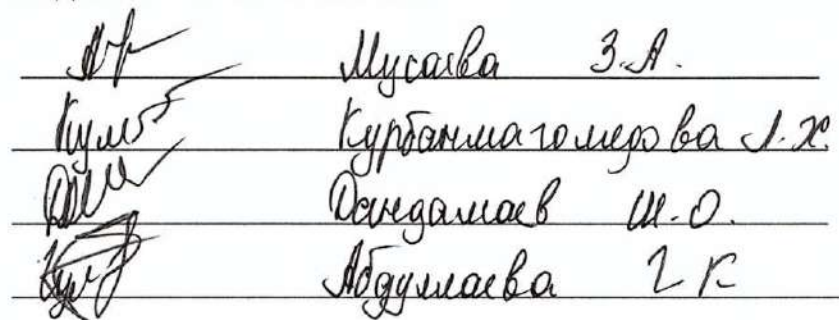 Мусаева З.А.
Курбанмагомедова Л.Х.
Дандамаев Ш.О.
Абдуллаева Г К